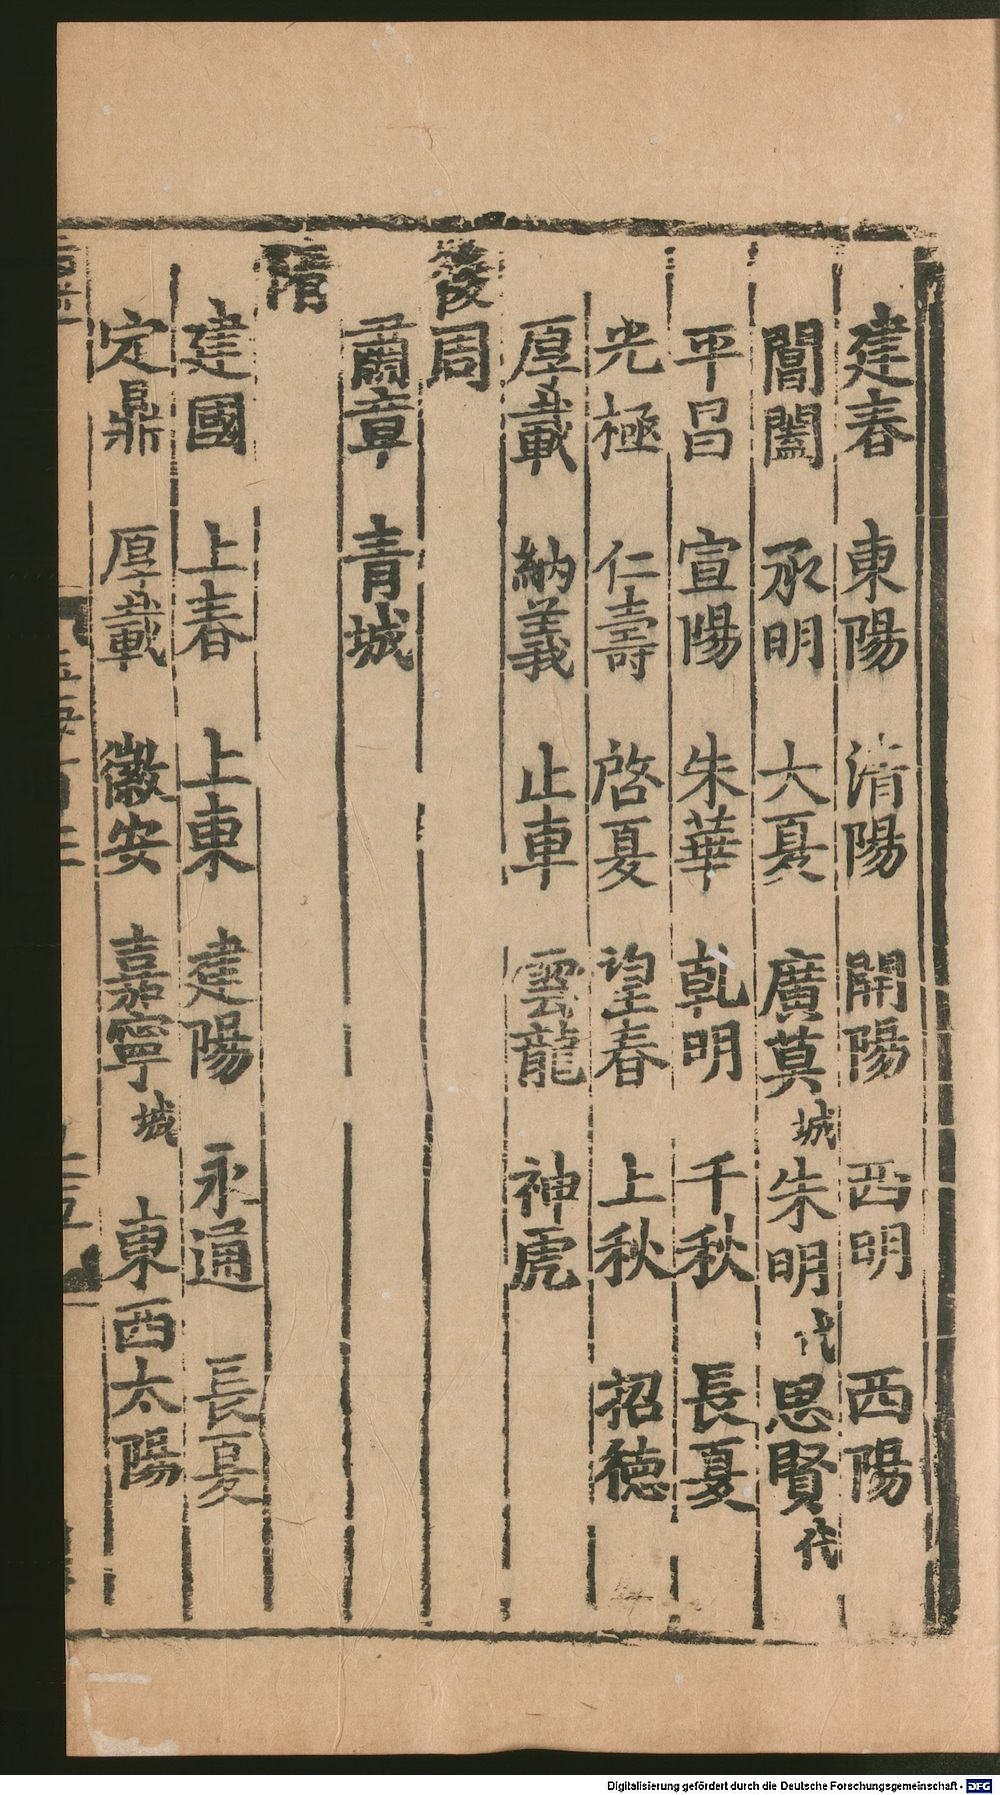 建春　東陽　清陽　開陽　西明　西陽
閶闔　承明　大夏　廣莫城　朱明代　思賢代
平昌　宣陽　朱華　乾明　千秋　長夏
光極　仁壽　啓夏　望春　上秋　招德
厚載　納義　止車　雲龍　神虎
後周
肅章　青城
隋
建國　上春　上東　建陽　永通　長夏
定鼎　厚載　徽安　嘉寧城　東西太陽
Digitalisierung gefördert durch die Deutsche Forschungsgemeinschaft - DFG